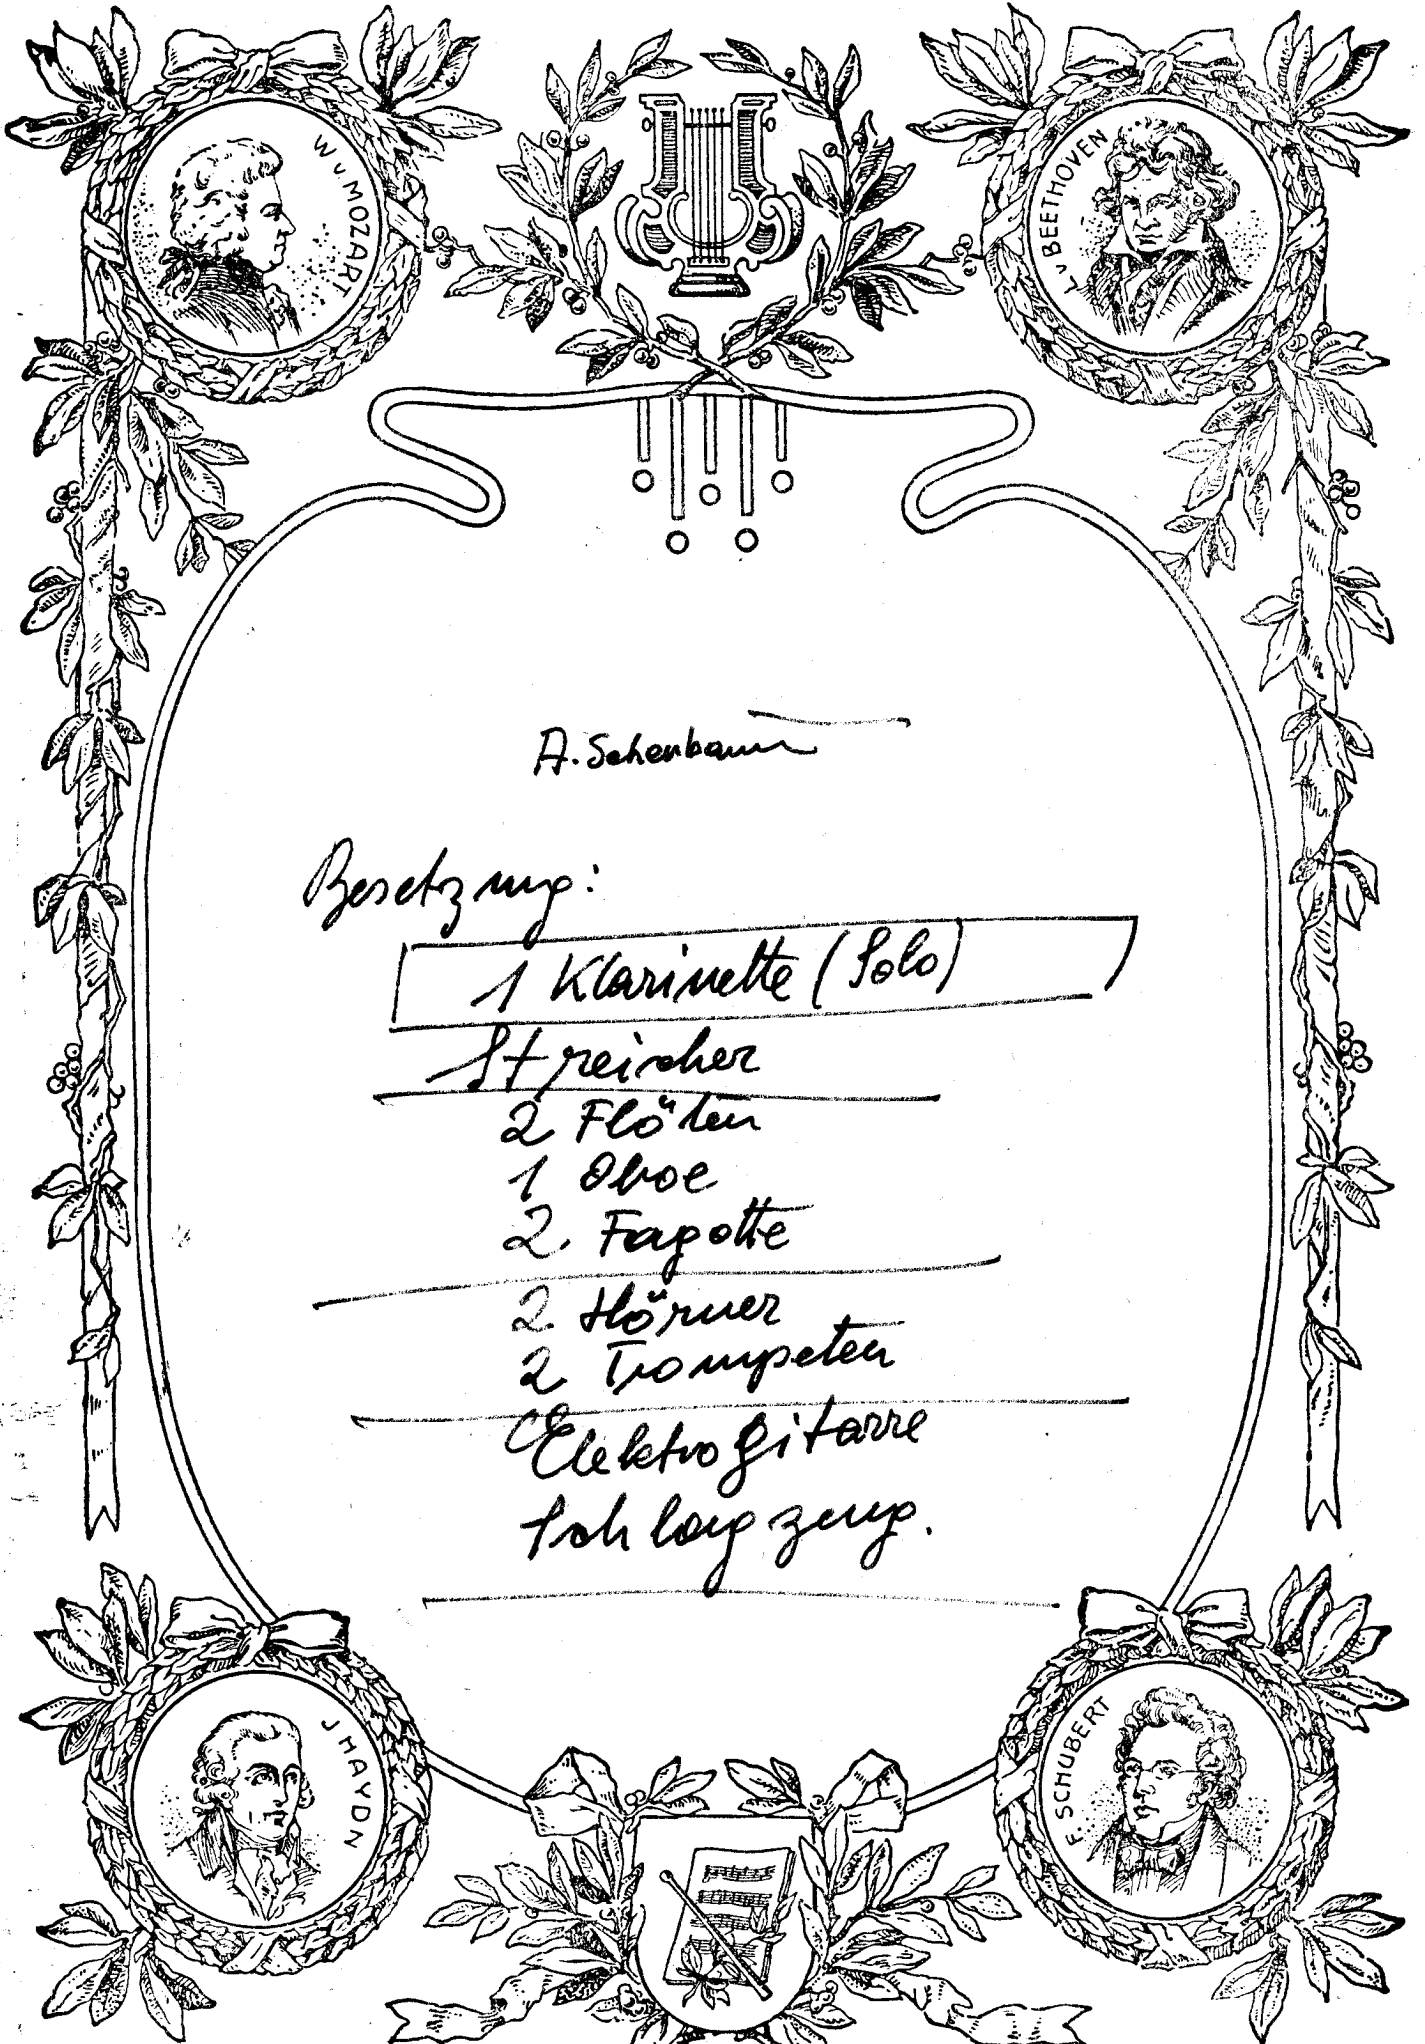 W v MOZART
L. v BEETHOVEN
A. Schenbaum
Besetzung:
1 Klarinette (Solo)
Streicher
2 Flöten
1 Oboe
2. Fagotte
2. Hörner
2 Trompeten
Elektrogitarre
Schlagzeug.
J HAYDN
F. SCHUBERT